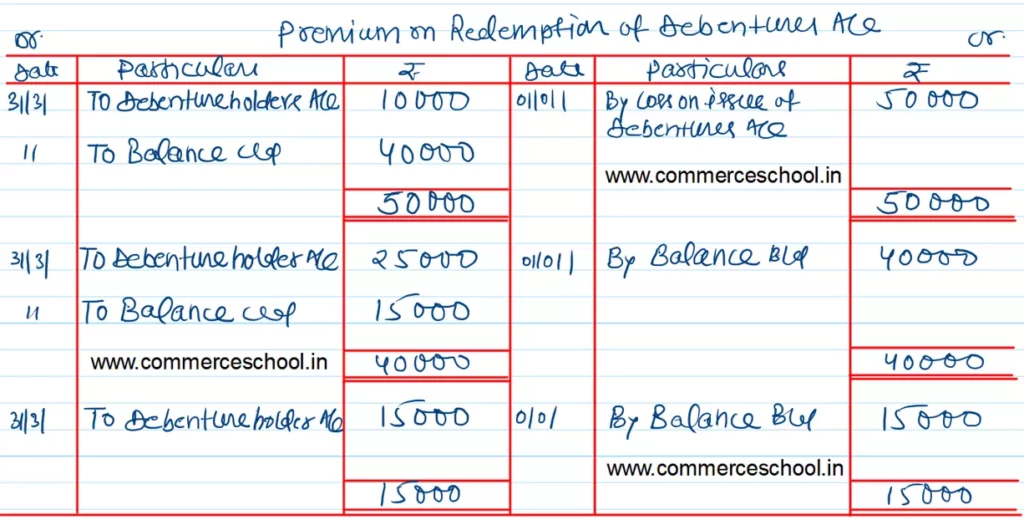 Premium on Redemption of Debentures A/c
Dr. Cr.
Date Particulars ₹ Date Particulars ₹
31/3/ To Debentureholders A/c 10000 01/01/ By Loss on issue of 50000
Debentures A/c
11 To Balance c/d 40000
www.commerceschool.in
50000 50000
31/3/ To Debentureholder A/c 25000 01/01/ By Balance B/d 40000
11 To Balance c/d 15000
www.commerceschool.in 40000 40000
31/3/ To Debentureholder A/c 15000 01/01 By Balance B/d 15000
www.commerceschool.in
15000 15000